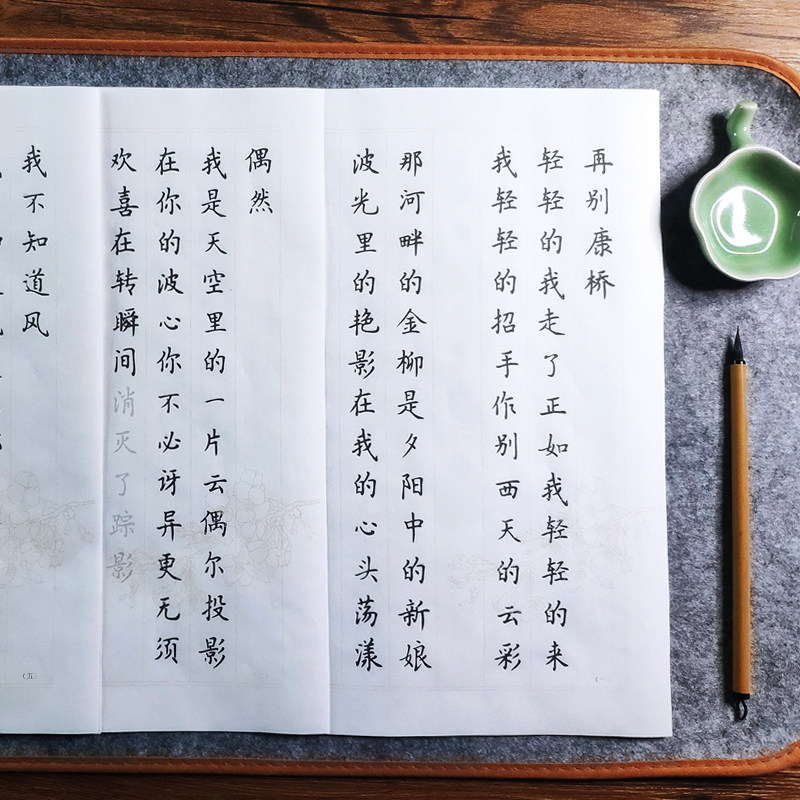 再别康桥
轻轻的我走了正如我轻轻的来
我轻轻的招手作别西天的云彩
那河畔的金柳是夕阳中的新娘
波光里的艳影在我的心头荡漾
偶然
我是天空里的一片云偶尔投影
在你的波心你不必讶异更无须
欢喜在转瞬间消灭了踪影
我不知道风
（五